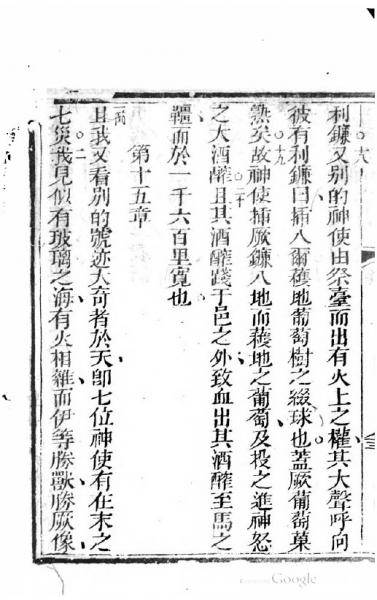 利鐮又別的神使由祭臺而出有火上之權其大聲呼向
十八
彼有利鐮曰插入爾鐮地葡萄樹之綴球也蓋厥葡萄菓
十九
熟矣故神使插厥鐮入地而穫地之葡萄及投之進神怒
二十
之大酒醡且其酒醡踐于邑之外致血出其酒醡至馬之
韁而於一千六百里寬也
第十五章
一
且我又看別的號迹大奇者於天卽七位神使有在末之
二
七災我見似有玻璃之海有火相雜而伊等勝獸勝厥像
Google